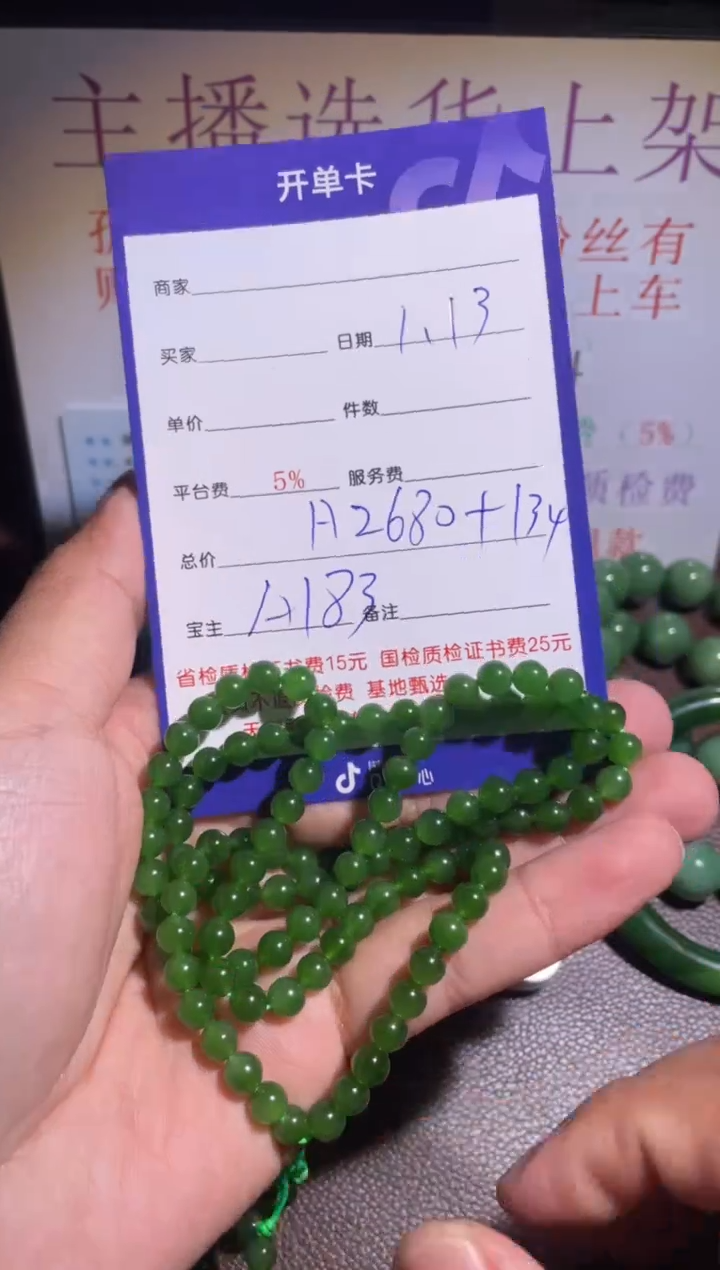 主播选货上架
丝有
上车
开单卡
商家
买家 日期 1.13
单价 件数
(5%)
平台费 5% 服务费
质检费
总价 A2680+134
宝主 A183 备注
省检质检证书费15元 国检质检证书费25元
基地甄选
心